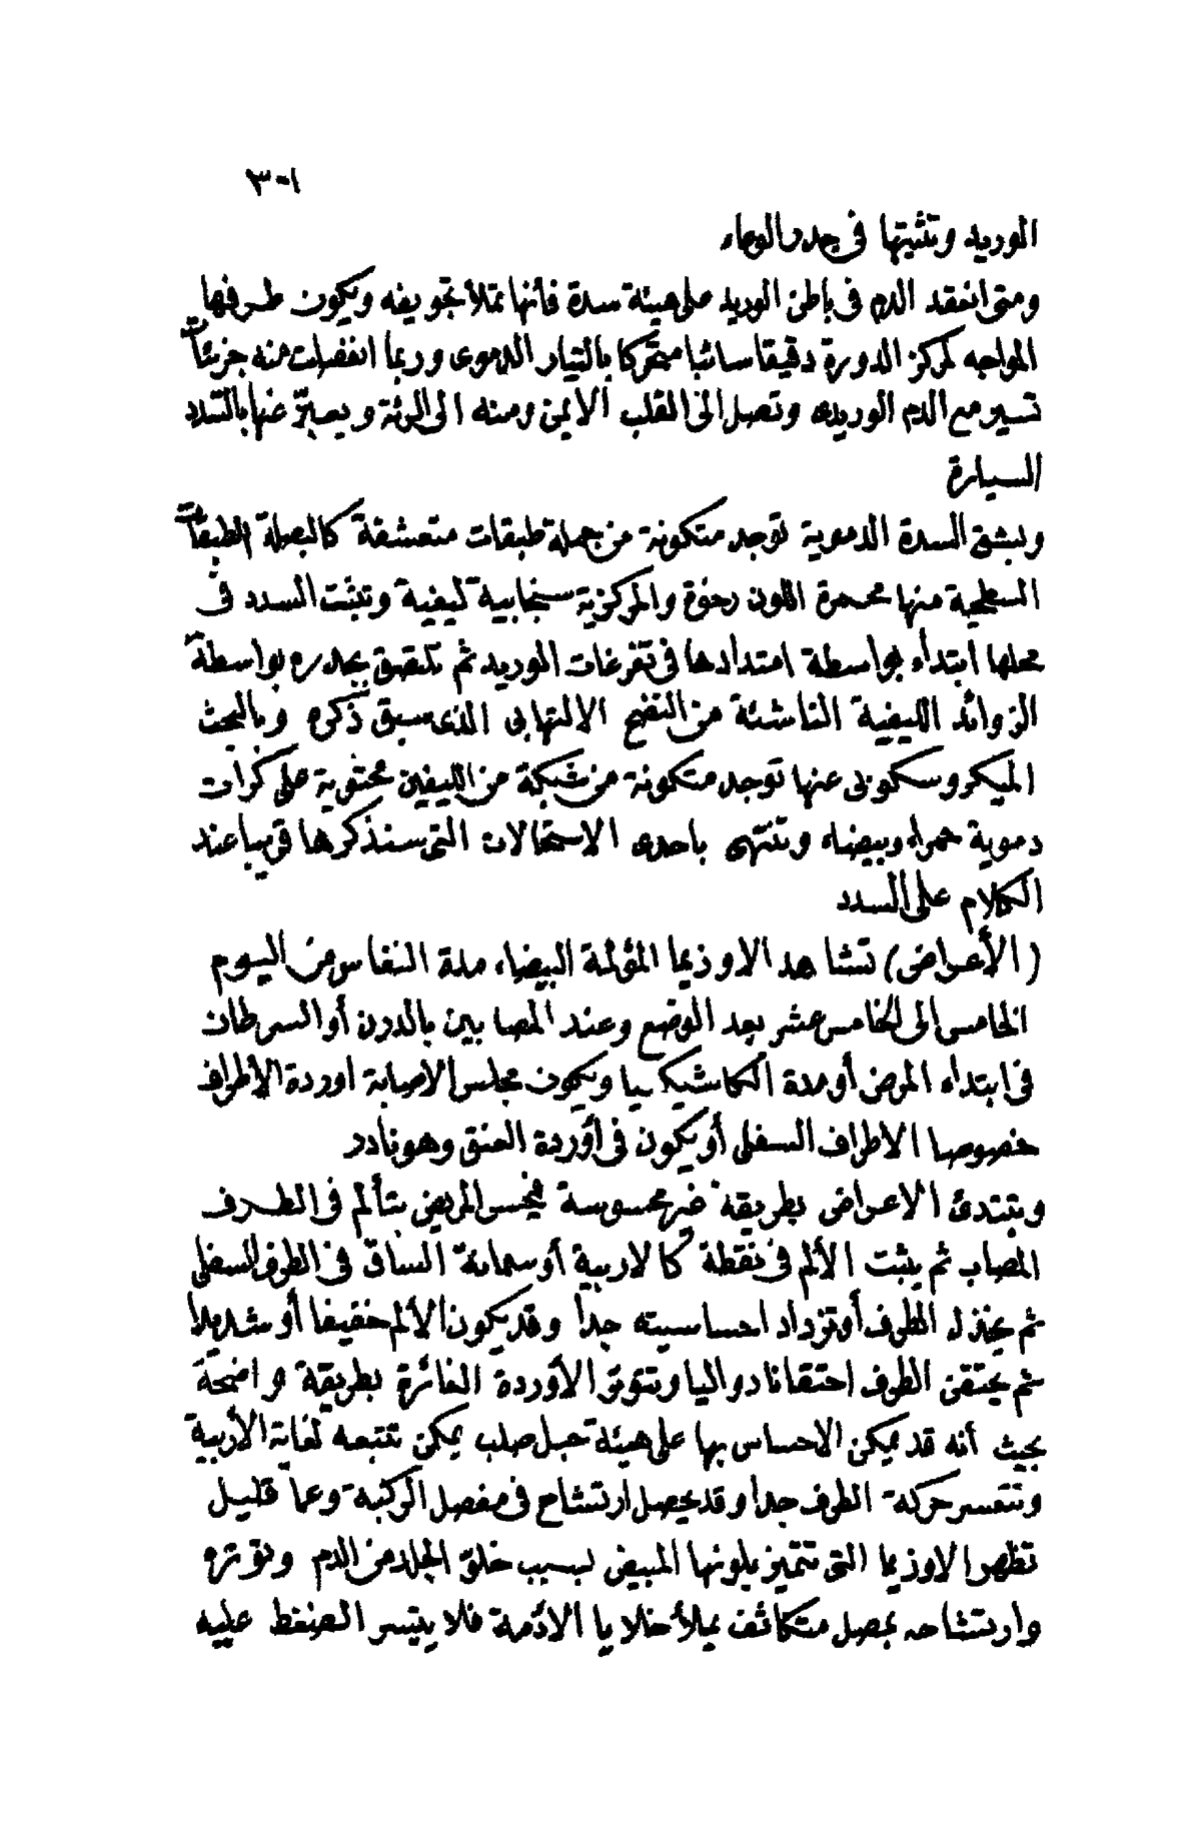 ٣٠١
الوريد وتثبيتها فى جدر الوعاء
ومتى انعقد الدم فى باطن الوريد على هيئة سدة فانها تملأ تجويفه ويكون طرفها
المواجه لمركز الدورة دقيقا سائبا متحركا بالتيار الدموى وربما انفصلت منه جزيئات
تسير مع الدم الوريدى وتصل الى القلب الايمن ومنه الى الرئة ويعبر عنها بالسدد
السيارة
وبشق السدة الدموية توجد متكونة من جملة طبقات متعشقة كالبصلة الطبقات
السطحية منها محمرة اللون رخوة والمركزية سنجابية ليفية وتثبت السدد فى
محلها ابتداء بواسطة امتدادها فى تفرعات الوريد ثم تلتصق بجدره بواسطة
الزوائد الليفية الناشئة من النضح الالتهابى الذى سبق ذكره وبالبحث
الميكروسكوبى عنها توجد متكونة من شبكة من الليفين محتوية على كرات
دموية حمراء وبيضاء وتنتهى باحدى الاستحالات التى سنذكرها قريبا عند
الكلام على السدد
(الأعراض) تشاهد الاوذيما المؤلمة البيضاء مدة النفاس من اليوم
الخامس الى الخامس عشر بعد الوضع وعند المصابين بالدرن أو السرطان
فى ابتداء المرض أو مدة الكاشيكسيا ويكون مجلس الاصابة اوردة الاطراف
خصوصا الاطراف السفلى أو يكون فى أوردة العنق وهو نادر
وتبتدئ الاعراض بطريقة غير محسوسة فيحس المريض بتألم فى الطرف
المصاب ثم يثبت الألم فى نقطة كالاربية أو سمانة الساق فى الطرف السفلى
ثم يخذل الطرف أو تزداد احساسيته جدا وقد يكون الألم خفيفا أو شديدا
ثم يحتقن الطرف احتقانا دواليا وتتوتر الأوردة الغائرة بطريقة واضحة
بحيث أنه قد يمكن الاحساس بها على هيئة حبل صلب يمكن تتبعه لغاية الأربية
وتتعسر حركة الطرف جدا وقد يحصل ارتشاح فى مفصل الركبة وعما قليل
تظهر الاوذيما التى تتميز بلونها المبيض بسبب خلو الجلد من الدم وتوتره
وارتشاحه بمصل متكاثف يملأ خلايا الأدمة فلا يتيسر الضغط عليه